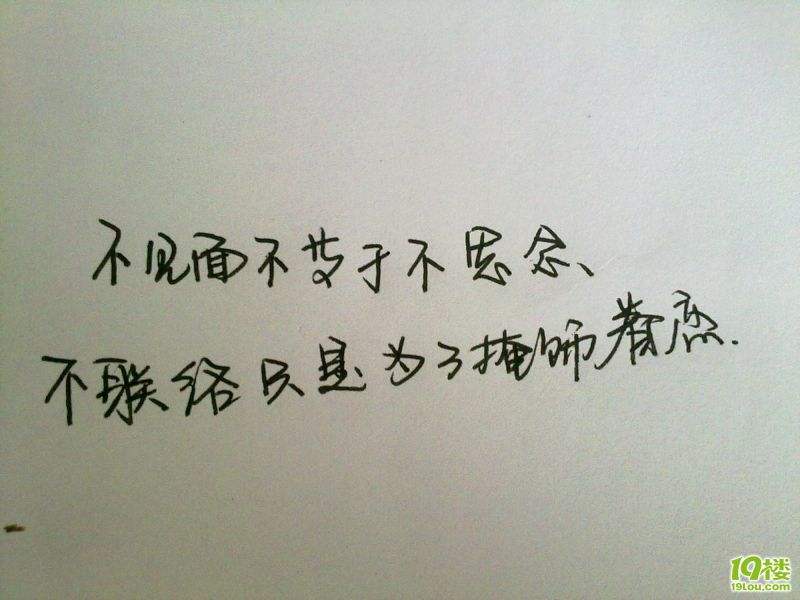 不见面不等于不思念、
不联络只是为了掩饰眷恋.
19楼
19lou.com